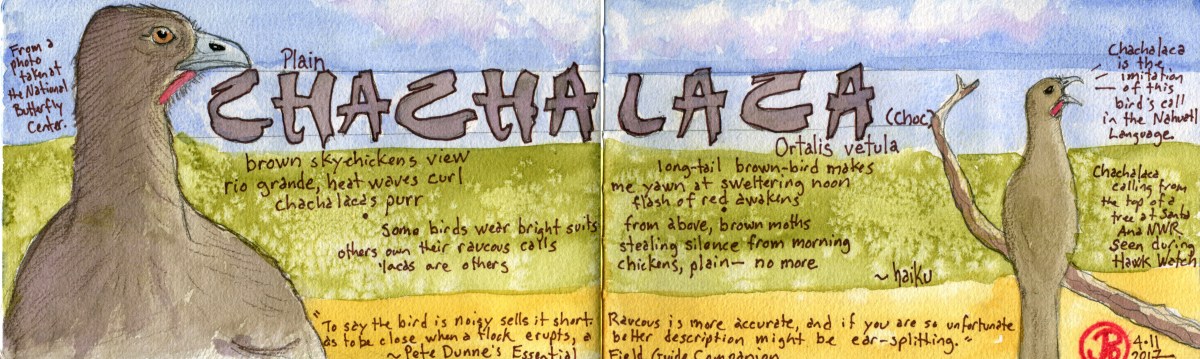 From a
photo
taken at
the National
Butterfly
Center.
Plain
CHACHALACA
(Choc)
Ortalis vetula
brown sky-chickens view
rio grande, heat waves curl
chachalacas purr
some birds wear bright suits
others own their raucous calls
'lacas are others
long-tail brown-bird makes
me yawn at sweltering noon
flash of red awakens
from above, brown moths
stealing silence from morning
chickens, plain— no more
~haiku
Chachalaca
is the
imitation
of this
bird's call
in the Nahuatl
Language.
Chachalaca
calling from
the top of a
tree at Santa
Ana NWR
seen during
Hawk Watch
"To say the bird is noisy sells it short. Raucous is more accurate, and if you are so unfortunate
as to be close when a flock erupts, a better description might be ear-splitting."
~Pete Dunne's Essential Field Guide Companion
4·11